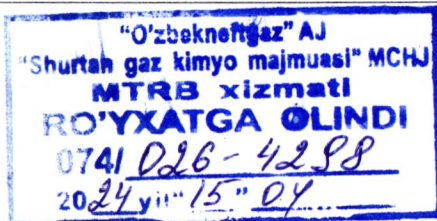 "O'zbekneftgaz" AJ
"Shurtan gaz kimyo majmuasi" MCHJ
MTRB xizmati
RO'YXATGA OLINDI
074/ 026-4298
2024 yil "15" 04